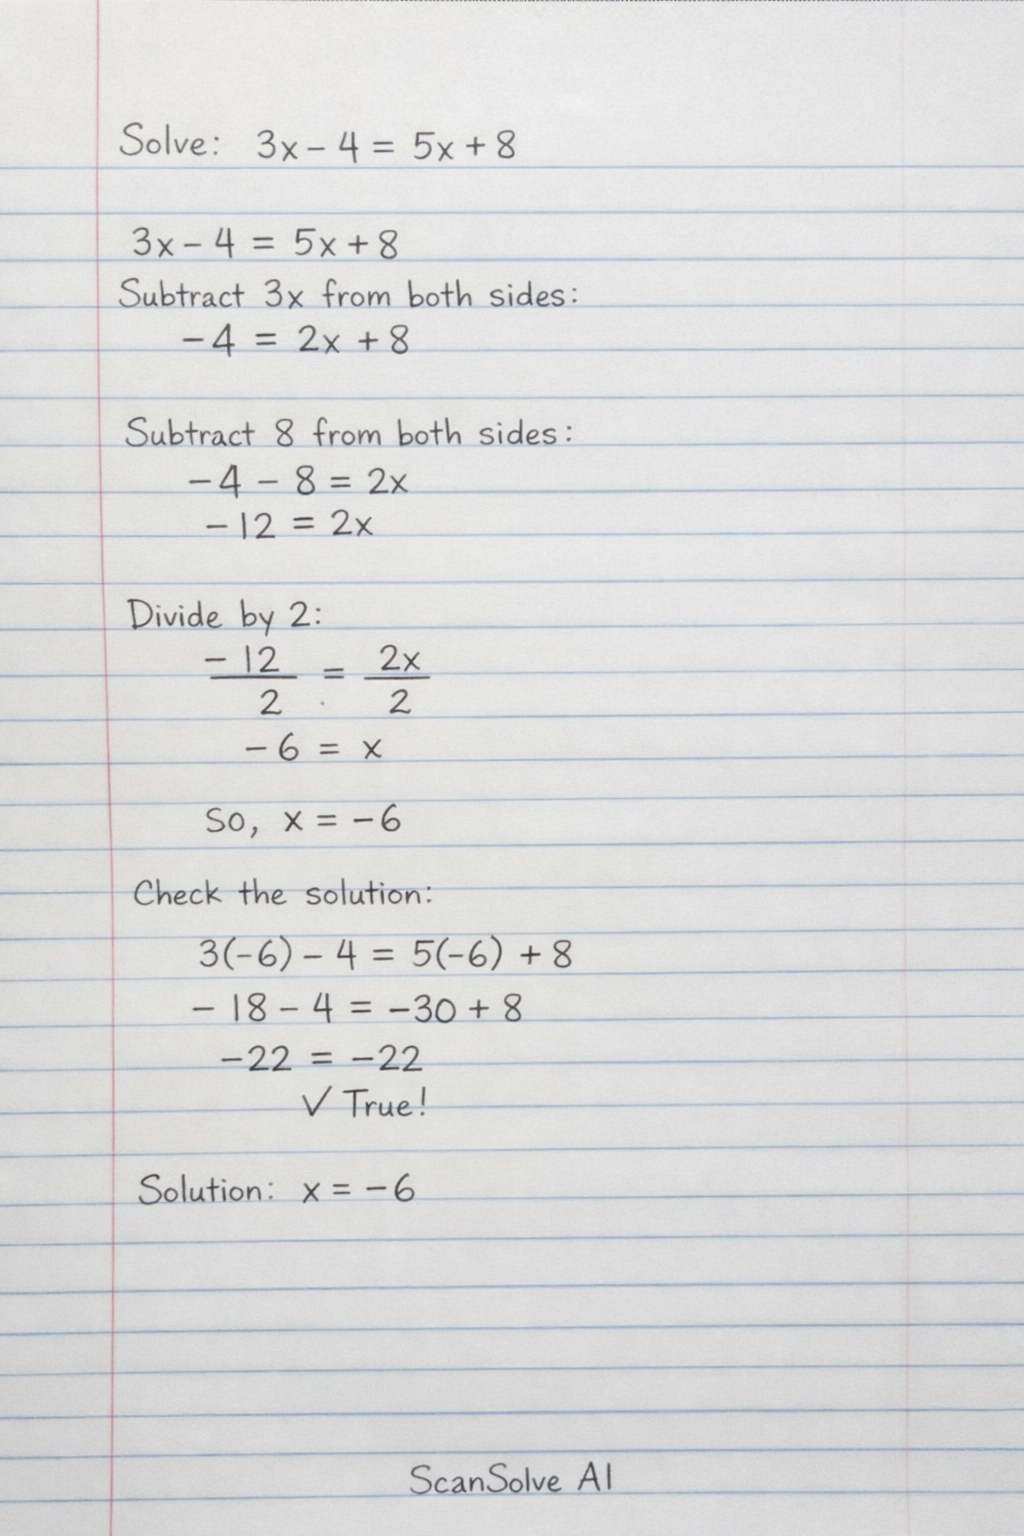 Solve: 3x - 4 = 5x + 8
3x - 4 = 5x + 8
Subtract 3x from both sides:
-4 = 2x + 8
Subtract 8 from both sides:
-4 - 8 = 2x
-12 = 2x
Divide by 2:
-12 = 2x
2 2
-6 = x
So, x = -6
Check the solution:
3(-6) - 4 = 5(-6) + 8
-18 - 4 = -30 + 8
-22 = -22
✓ True!
Solution: x = -6
ScanSolve AI